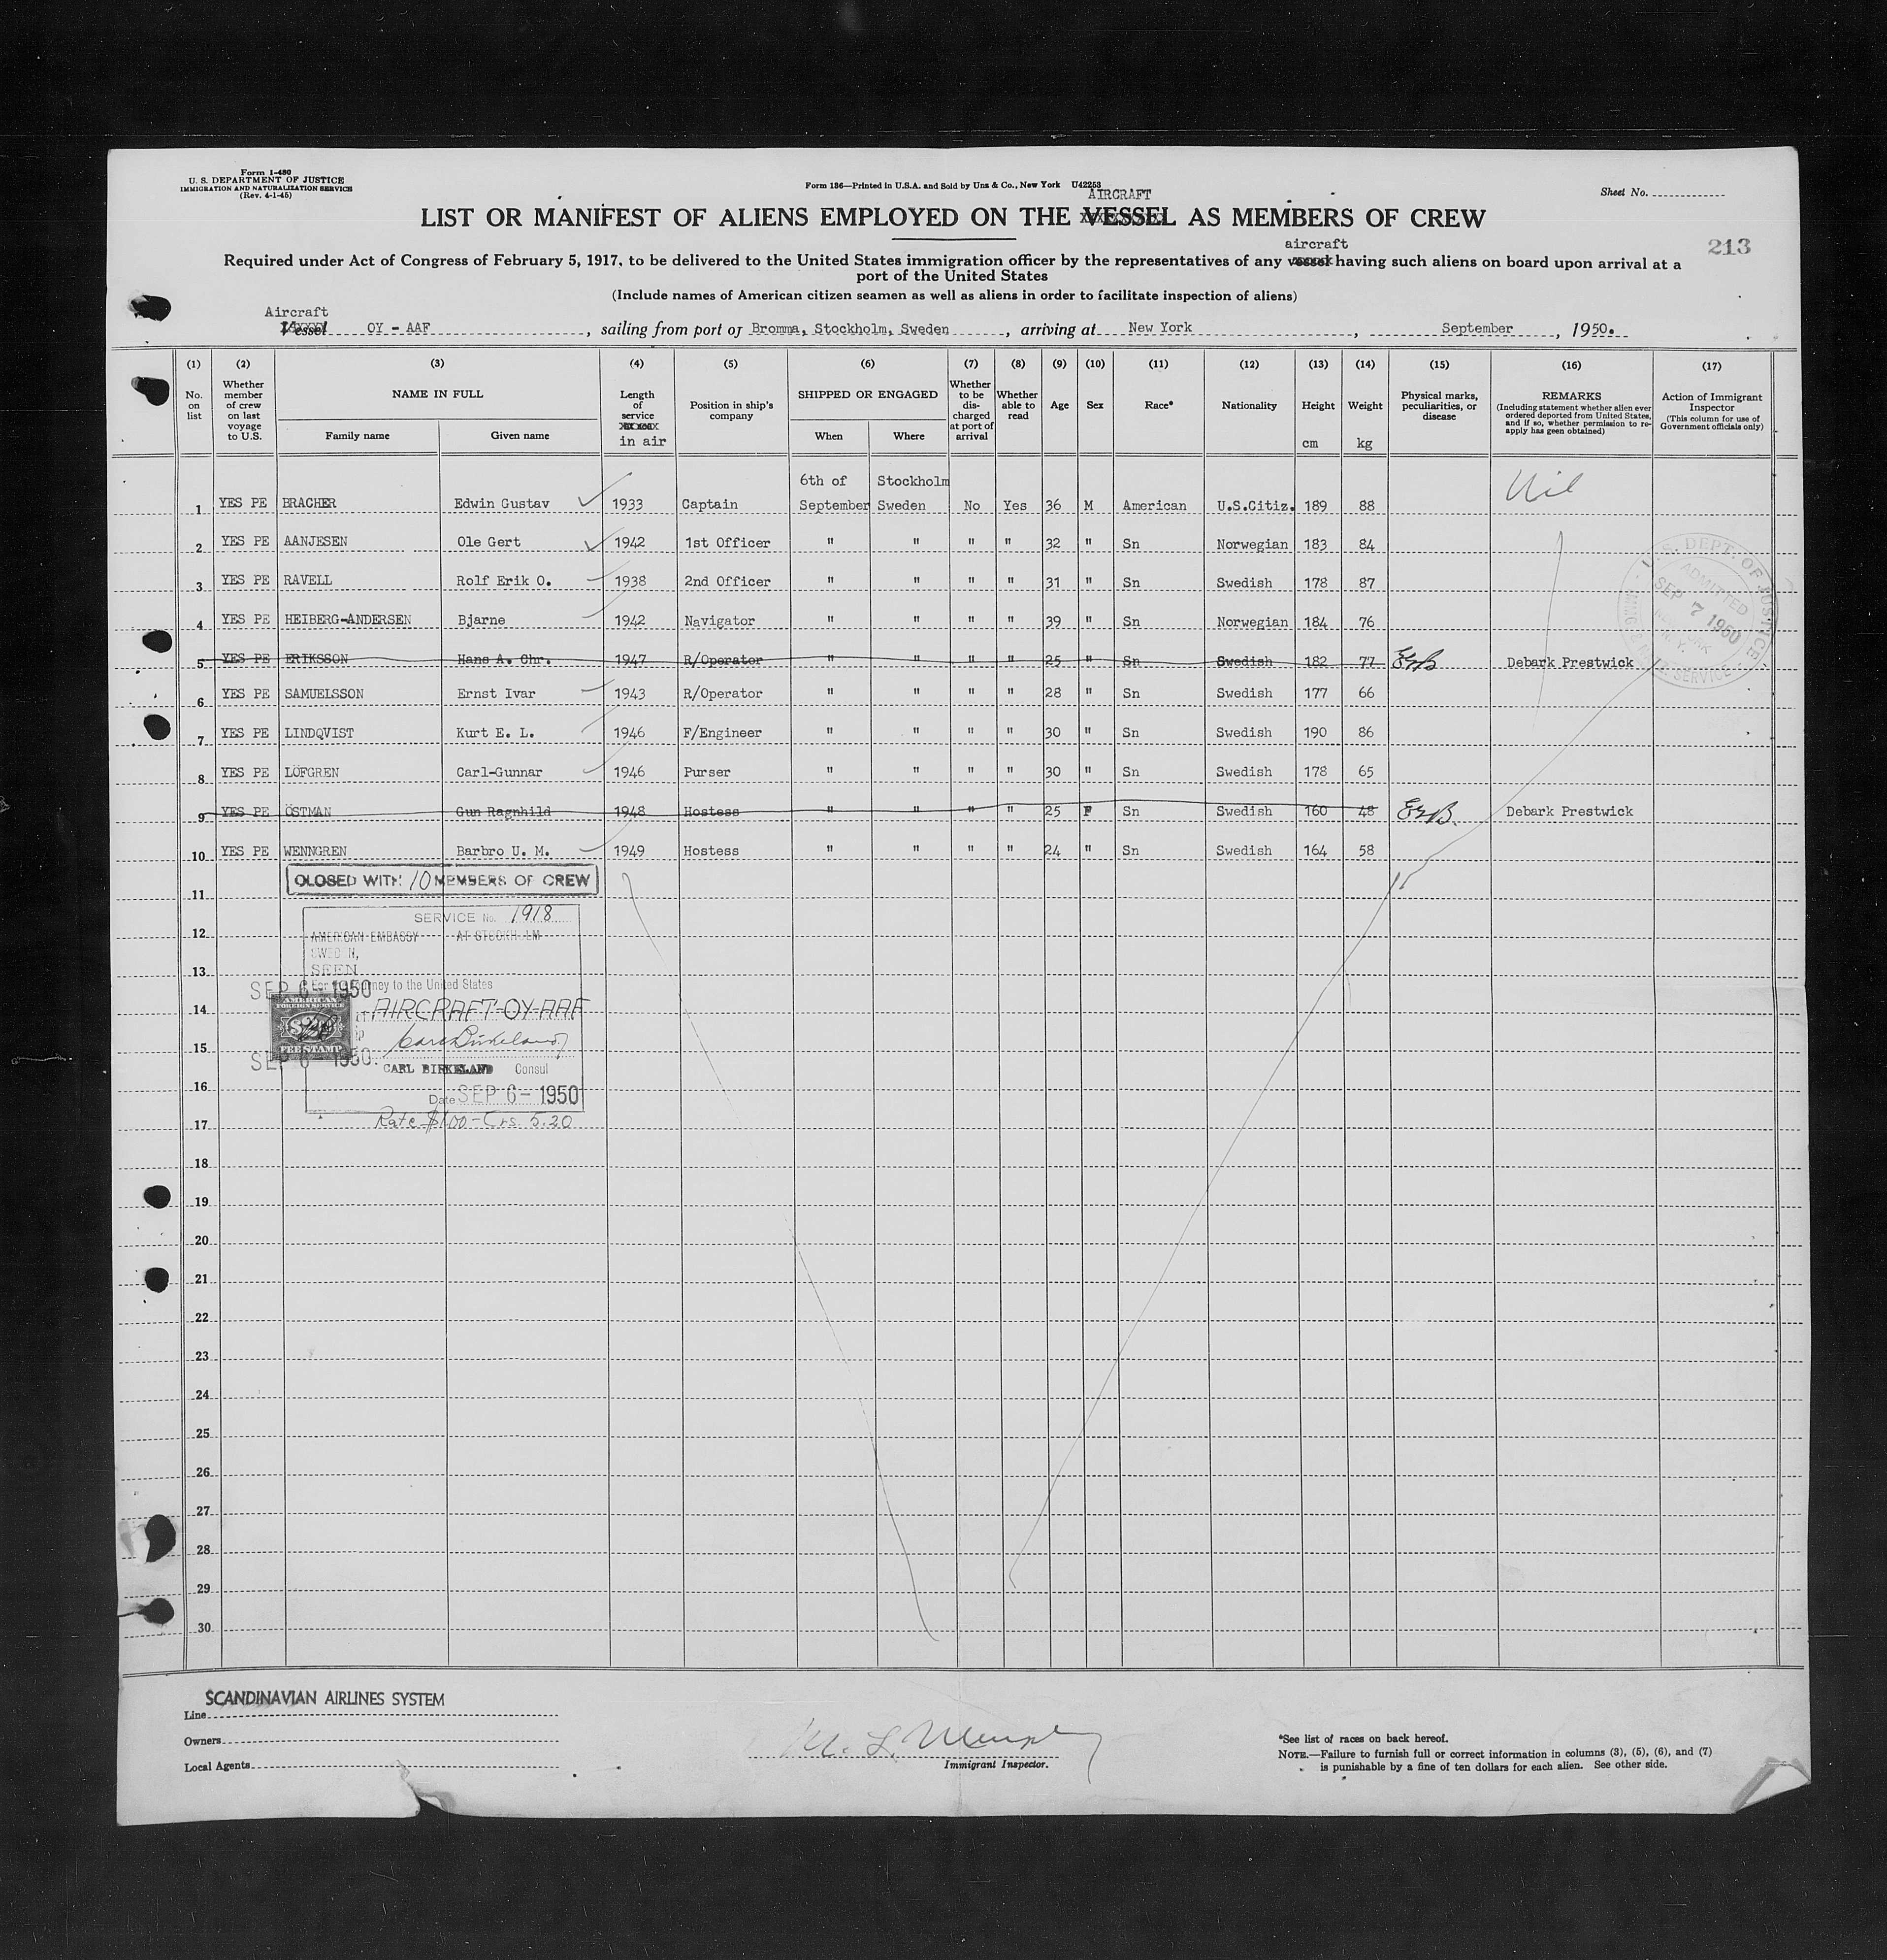 Form I-480
U. S. DEPARTMENT OF JUSTICE
IMMIGRATION AND NATURALIZATION SERVICE
(Rev. 4-1-45)
Form 136—Printed in U.S.A. and Sold by Unz & Co., New York U42253
Sheet No.
AIRCRAFT
LIST OR MANIFEST OF ALIENS EMPLOYED ON THE VESSEL AS MEMBERS OF CREW
213
aircraft
Required under Act of Congress of February 5, 1917, to be delivered to the United States immigration officer by the representatives of any vessel having such aliens on board upon arrival at a
port of the United States
(Include names of American citizen seamen as well as aliens in order to facilitate inspection of aliens)
Aircraft
Vessel OY - AAF, sailing from port of Bromma, Stockholm, Sweden, arriving at New York, September, 1950.
(1) (2) (3) (4) (5) (6) (7) (8) (9) (10) (11) (12) (13) (14) (15) (16) (17)
No. on list
Whether member of crew on last voyage to U.S.
NAME IN FULL
Family name Given name
Length of service in air
Position in ship's company
SHIPPED OR ENGAGED
When Where
Whether to be discharged at port of arrival
Whether able to read
Age
Sex
Race*
Nationality
Height cm
Weight kg
Physical marks, peculiarities, or disease
REMARKS
(Including statement whether alien ever ordered deported from United States, and if so, whether permission to re-apply has geen obtained)
Action of Immigrant Inspector
(This column for use of Government officials only)
6th of Stockholm
1 YES PE BRACHER Edwin Gustav 1933 Captain September Sweden No Yes 36 M American U.S.Citiz. 189 88 Nil
2 YES PE AANJESEN Ole Gert 1942 1st Officer " " " " 32 " Sn Norwegian 183 84
3 YES PE RAVELL Rolf Erik O. 1938 2nd Officer " " " " 31 " Sn Swedish 178 87
4 YES PE HEIBERG-ANDERSEN Bjarne 1942 Navigator " " " " 39 " Sn Norwegian 184 76
5 YES PE ERIKSSON Hans A. Chr. 1947 R/Operator " " " " 25 " Sn Swedish 182 77 EGB Debark Prestwick
6 YES PE SAMUELSSON Ernst Ivar 1943 R/Operator " " " " 28 " Sn Swedish 177 66
7 YES PE LINDQVIST Kurt E. L. 1946 F/Engineer " " " " 30 " Sn Swedish 190 86
8 YES PE LÖFGREN Carl-Gunnar 1946 Purser " " " " 30 " Sn Swedish 178 65
9 YES PE ÖSTMAN Gun Ragnhild 1948 Hostess " " " " 25 F Sn Swedish 160 48 EGB. Debark Prestwick
10 YES PE WENNGREN Barbro U. M. 1949 Hostess " " " " 24 " Sn Swedish 164 58
U.S. DEPT. OF JUSTICE
ADMITTED
SEP 7 1950
N.Y.
CLOSED WITH 10 MEMBERS OF CREW
11
SERVICE No. 1918
12
AMERICAN EMBASSY AT STOCKHOLM
SWEDEN,
13
SEEN
For journey to the United States
SEP 6 - 1950
14
AIRCRAFT-OY-AAF
AMERICAN
FOREIGN SERVICE
$2
FEE STAMP
15
Carl Birkeland
SEP 6 - 1950.
CARL BIRKELAND Consul
16
Date SEP 6 - 1950
17
Rate $1.00 - Crs. 5.20
18
19
20
21
22
23
24
25
26
27
28
29
30
SCANDINAVIAN AIRLINES SYSTEM
Line
Owners
Local Agents
M. L. Murphy
Immigrant Inspector.
*See list of races on back hereof.
NOTE.—Failure to furnish full or correct information in columns (3), (5), (6), and (7)
is punishable by a fine of ten dollars for each alien. See other side.